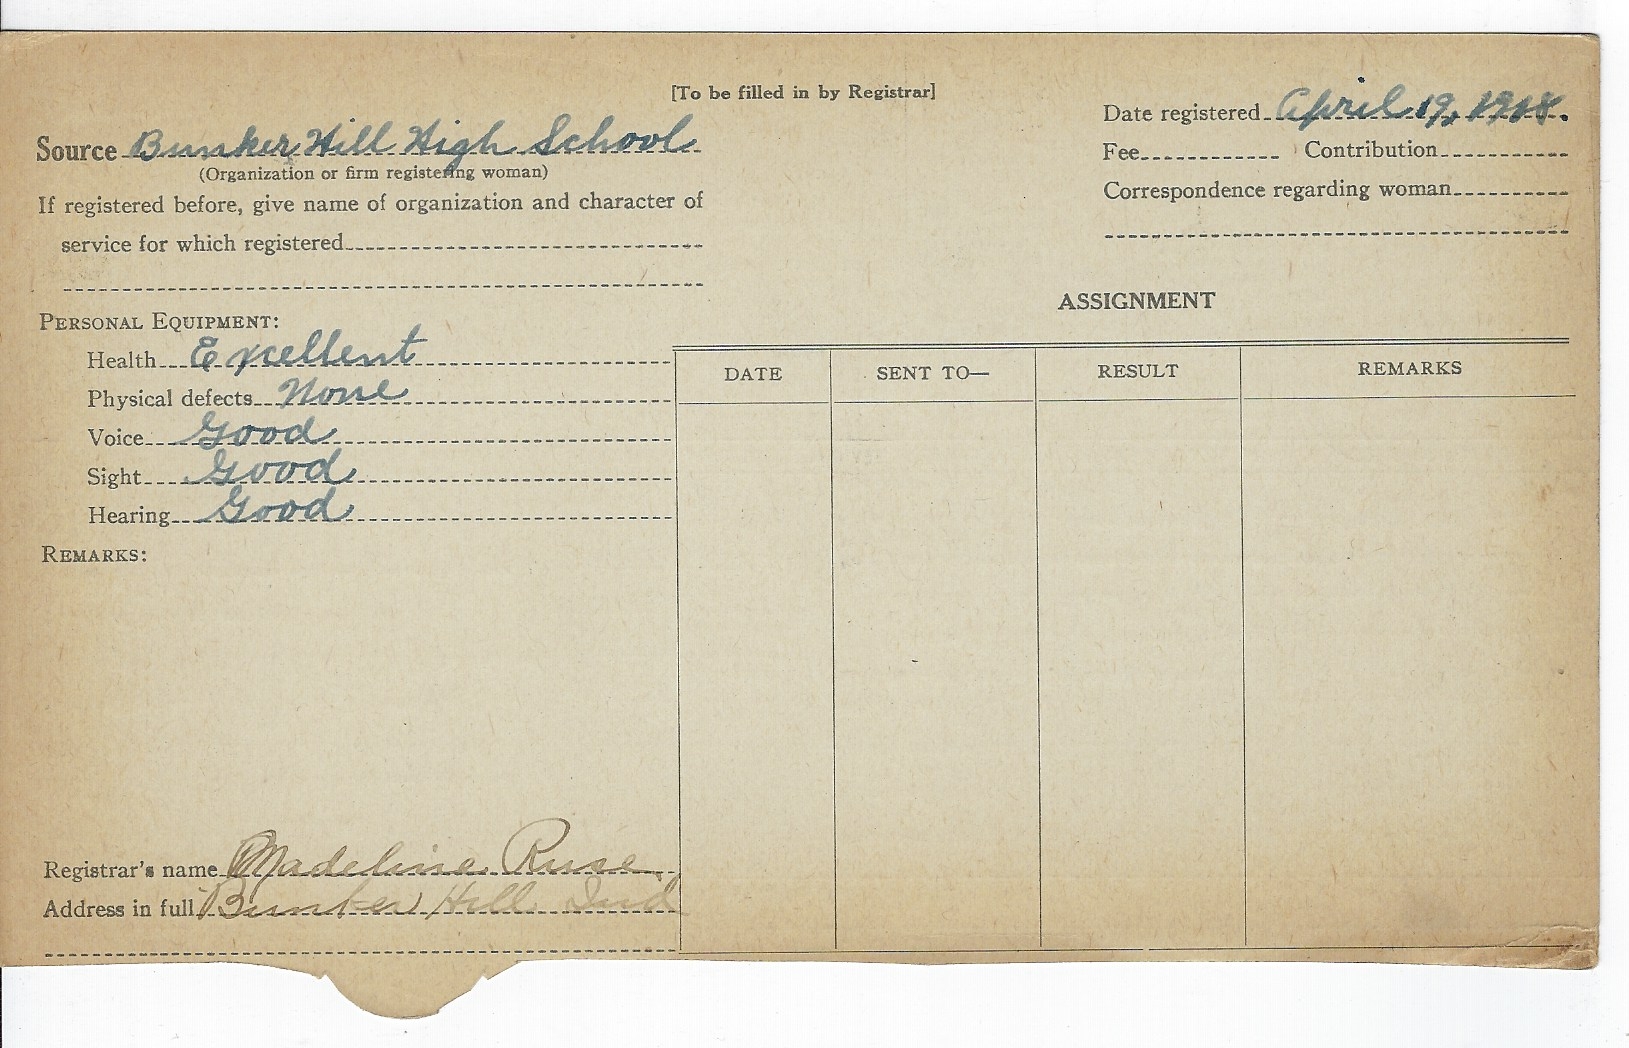 [To be filled in by Registrar]
Source Bunker Hill High School
(Organization or firm registering woman)
If registered before, give name of organization and character of
service for which registered
Date registered April 19, 1918.
Fee Contribution
Correspondence regarding woman
PERSONAL EQUIPMENT:
Health Excellent
Physical defects None
Voice Good
Sight Good
Hearing Good
REMARKS:
ASSIGNMENT
DATE SENT TO— RESULT REMARKS
Registrar's name Madeline Ruse
Address in full Bunker Hill Ind